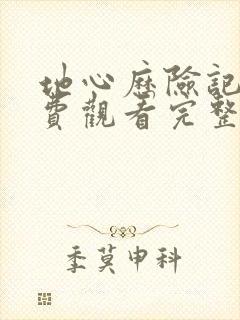 地心歷險記
費觀看完整
季莫申科